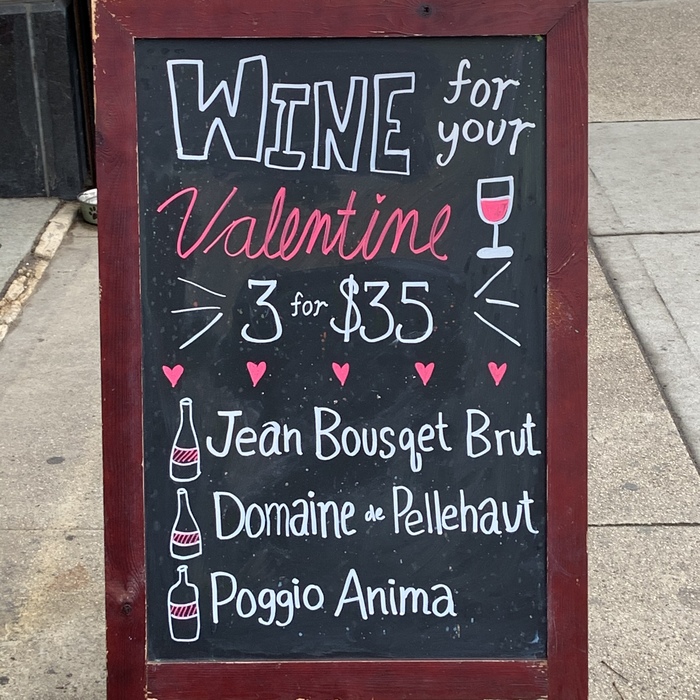 WINE for your
Valentine
3 for $35
Jean Bousqet Brut
Domaine de Pellehaut
Poggio Anima